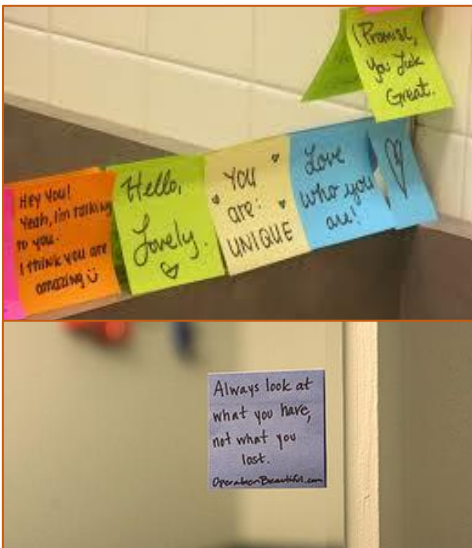 I Promise,
You Look
Great.
Hey You!
Yeah, I'm talking
to you.
I think you are
amazing
Hello,
Lovely.
You
are:
UNIQUE
Love
who you
are!
Always look at
what you have,
not what you
lost.
OperationBeautiful.com